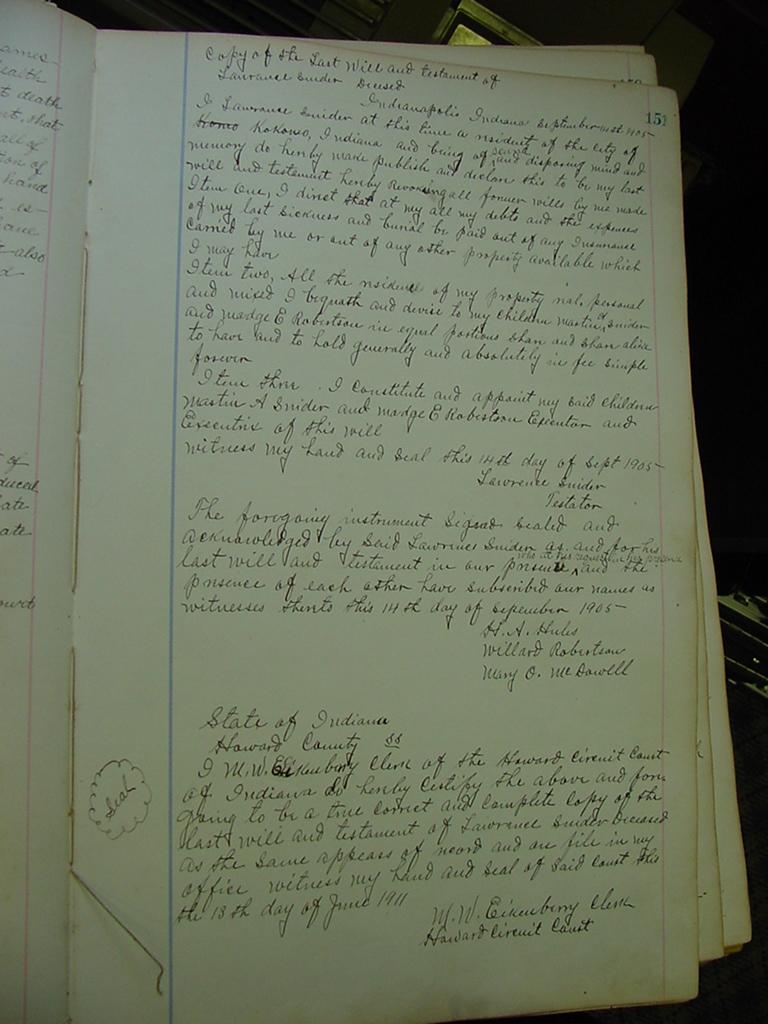 ames
ealth
t death
nt. that
all of
tion of
hand
es-
t also
d
of
duced
ate
ate
ourt
151
Copy of the Last Will and testament of
Lawrance Snider Decesed
Indianapolis Indiana September 1905
I Lawrance Snider at this time a resident of the City of
Kokomo, Indiana and being of sound and disposing mind and
memory do hereby make publish and declare this to be my last
will and testament hereby Revoking all former wills by me made
Item One, I direct that at my all my debts and the expences
of my last Sickness and burial be paid out of any Insurance
Carried by me or out of any other property available which
I may have
Item two, All the residence of my property real, personal
and mixed I bequath and devise to my Children Martin A Snider
and Madge E Robertson in equal portions Shar and Shar alike
to have and to hold generally and absolutely in fee Simple
forever
Item three. I Constitute and appoint my Said Children
Martin A Snider and Madge E Robertson Executor and
Executrix of this will
Witness my hand and Seal this 14th day of Sept 1905-
Lawrence Snider
Testator
The foregoing instrument Signed Sealed and
Acknowledged by Said Lawrence Snider as and for his
last will and testament in our presence who at his request in his presence and the
presence of each other have Subscribed our names as
witnesses thereto this 14th day of September 1905-
H. A. Hules
Willard Robertson
Mary O. McDowell
State of Indiana
Howard County SS
I M. W. Eikenberry Clerk of the Howard Circuit Court
of Indiana do hereby Certify the above and fore
going to be a true Correct and Complete Copy of the
last will and testament of Lawrence Snider Deceased
as the Same appears of record and on file in my
office witness my hand and Seal of Said Court this
the 13th day of June 1911
M. W. Eikenberry Clerk
Howard Circuit Court
Seal